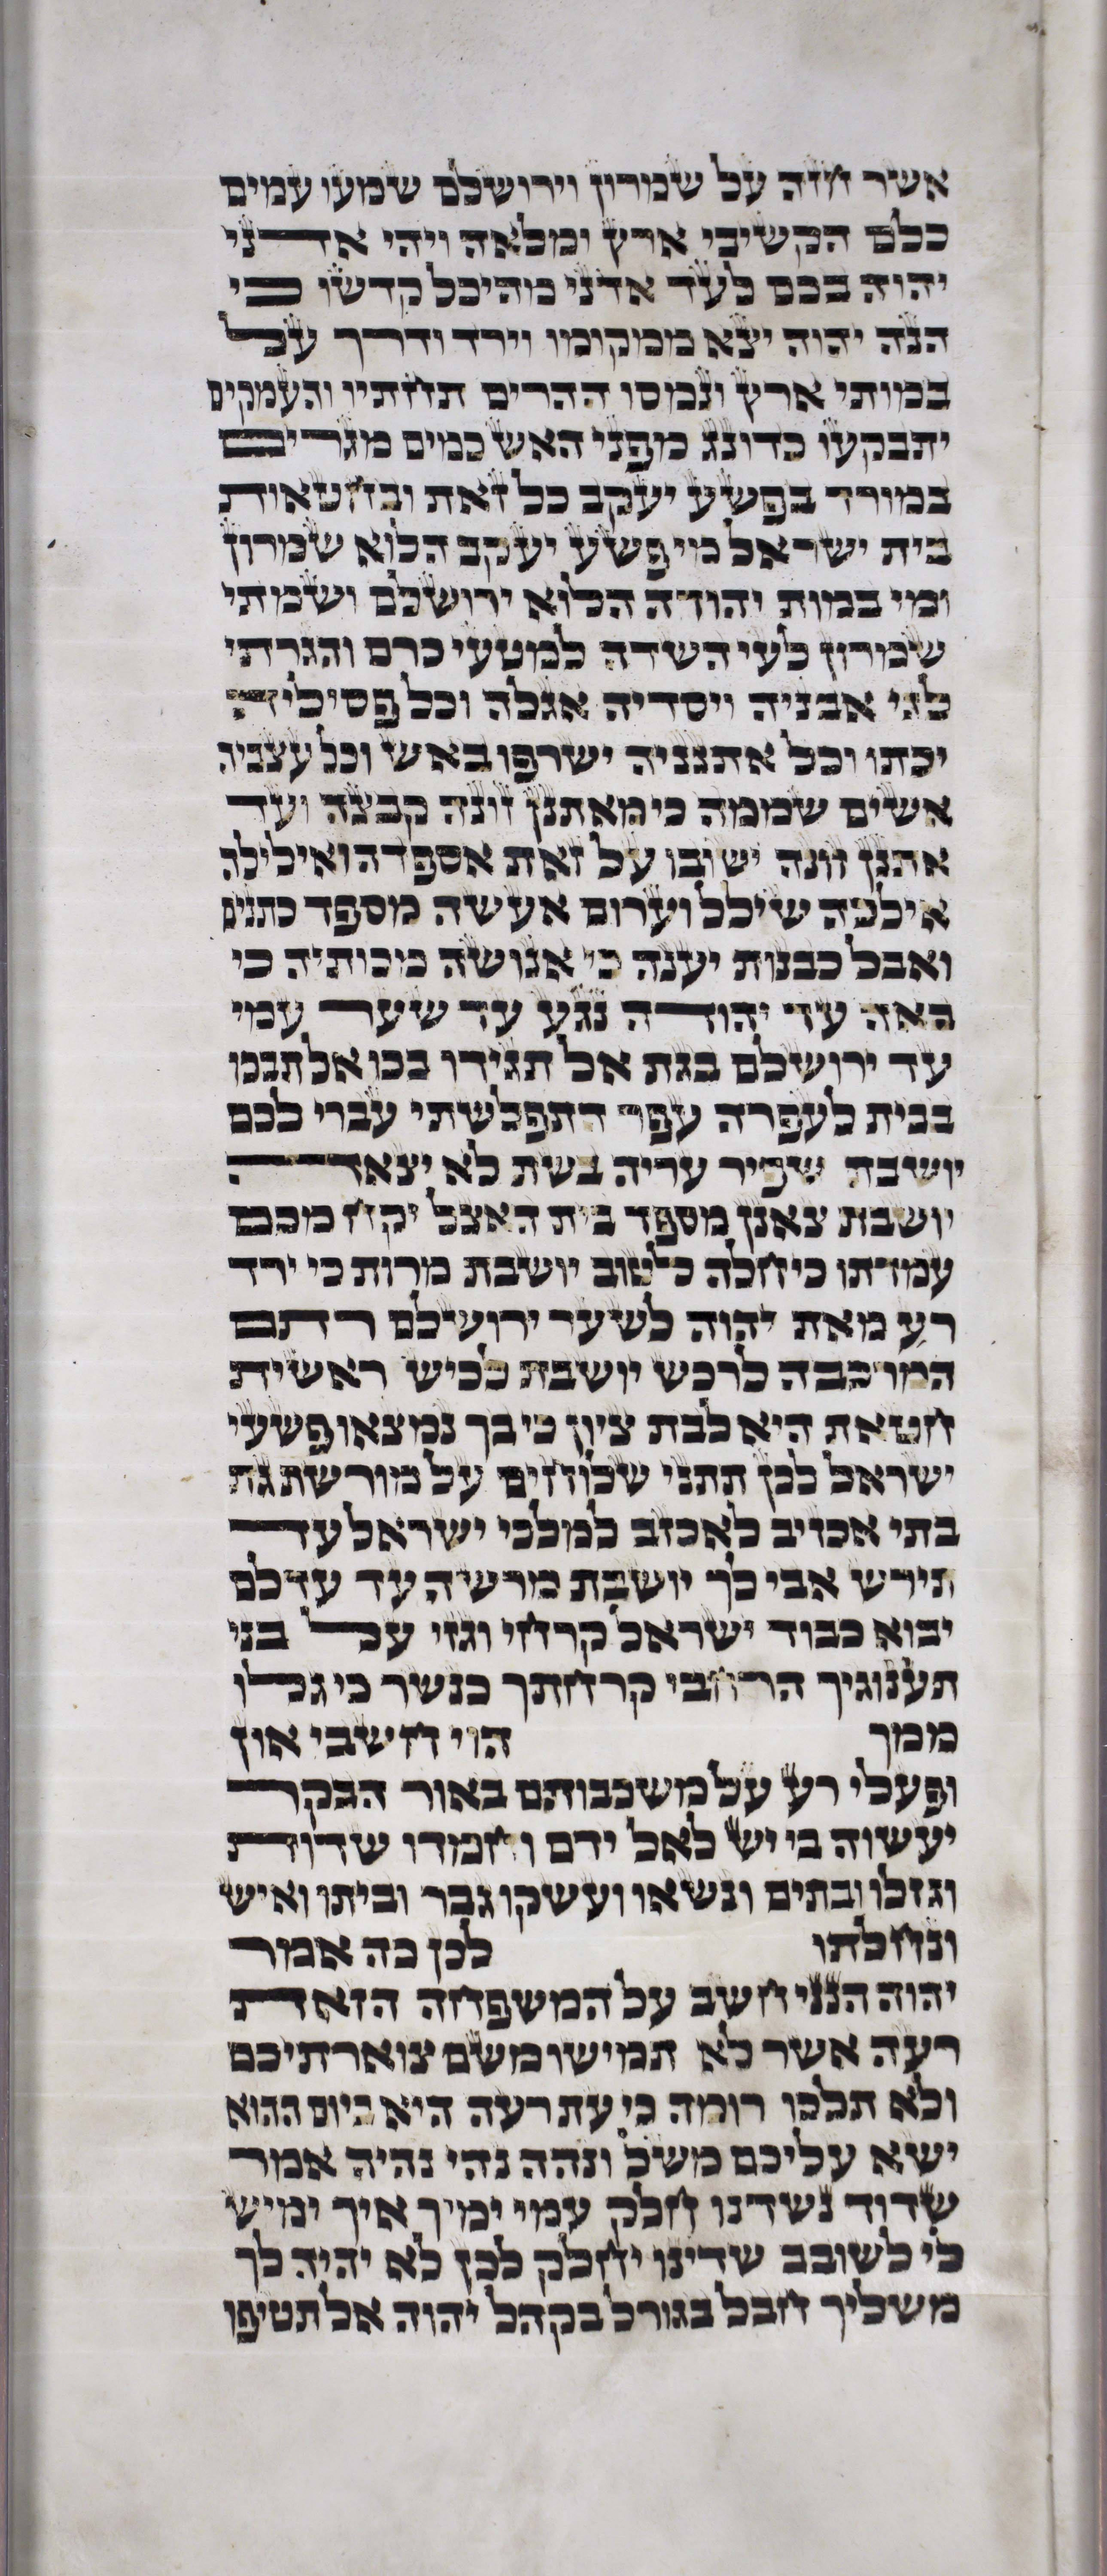 אשר חזה על שמרון וירושלם שמעו עמים
כלם הקשיבי ארץ ומלאה ויהי אדני
יהוה בכם לעד אדני מהיכל קדשו כי
הנה יהוה יצא ממקומו וירד ודרך על
במותי ארץ ונמסו ההרים תחתיו והעמקים
יתבקעו כדונג מפני האש כמים מגרים
במורד בפשע יעקב כל זאת ובחטאות
בית ישראל מי פשע יעקב הלוא שמרון
ומי במות יהודה הלוא ירושלם ושמתי
שמרון לעי השדה למטעי כרם והגרתי
לגי אבניה ויסדיה אגלה וכל פסיליה
יכתו וכל אתנניה ישרפו באש וכל עצביה
אשים שממה כי מאתנן זונה קבצה ועד
אתנן זונה ישובו על זאת אספדה ואילילה
אילכה שילל וערום אעשה מספד כתנים
ואבל כבנות יענה כי אנושה מכותיה כי
באה עד יהודה נגע עד שער עמי
עד ירושלם בגת אל תגידו בכו אל תבכו
בבית לעפרה עפר התפלשתי עברי לכם
יושבת שפיר עריה בשת לא יצאה
יושבת צאנן מספד בית האצל יקח מכם
עמדתו כי חלה לטוב יושבת מרות כי ירד
רע מאת יהוה לשער ירושלם רתם
המרכבה לרכש יושבת לכיש ראשית
חטאת היא לבת ציון כי בך נמצאו פשעי
ישראל לכן תתני שלוחים על מורשת גת
בתי אכזיב לאכזב למלכי ישראל עד
הירש אבי לך יושבת מרשה עד עדלם
יבוא כבוד ישראל קרחי וגזי על בני
תענוגיך הרחבי קרחתך כנשר כי גלו
ממך הוי חשבי און
ופעלי רע על משכבותם באור הבקר
יעשוה כי יש לאל ידם וחמדו שדות
וגזלו ובתים ונשאו ועשקו גבר וביתו ואיש
ונחלתו לכן כה אמר
יהוה הנני חשב על המשפחה הזאת
רעה אשר לא תמישו משם צוארתיכם
ולא תלכו רומה כי עת רעה היא ביום ההוא
ישא עליכם משל ונהה נהי נהיה אמר
שדוד נשדנו חלק עמי ימיר איך ימיש
לי לשובב שדינו יחלק לכן לא יהיה לך
משליך חבל בגורל בקהל יהוה אל תטיפו